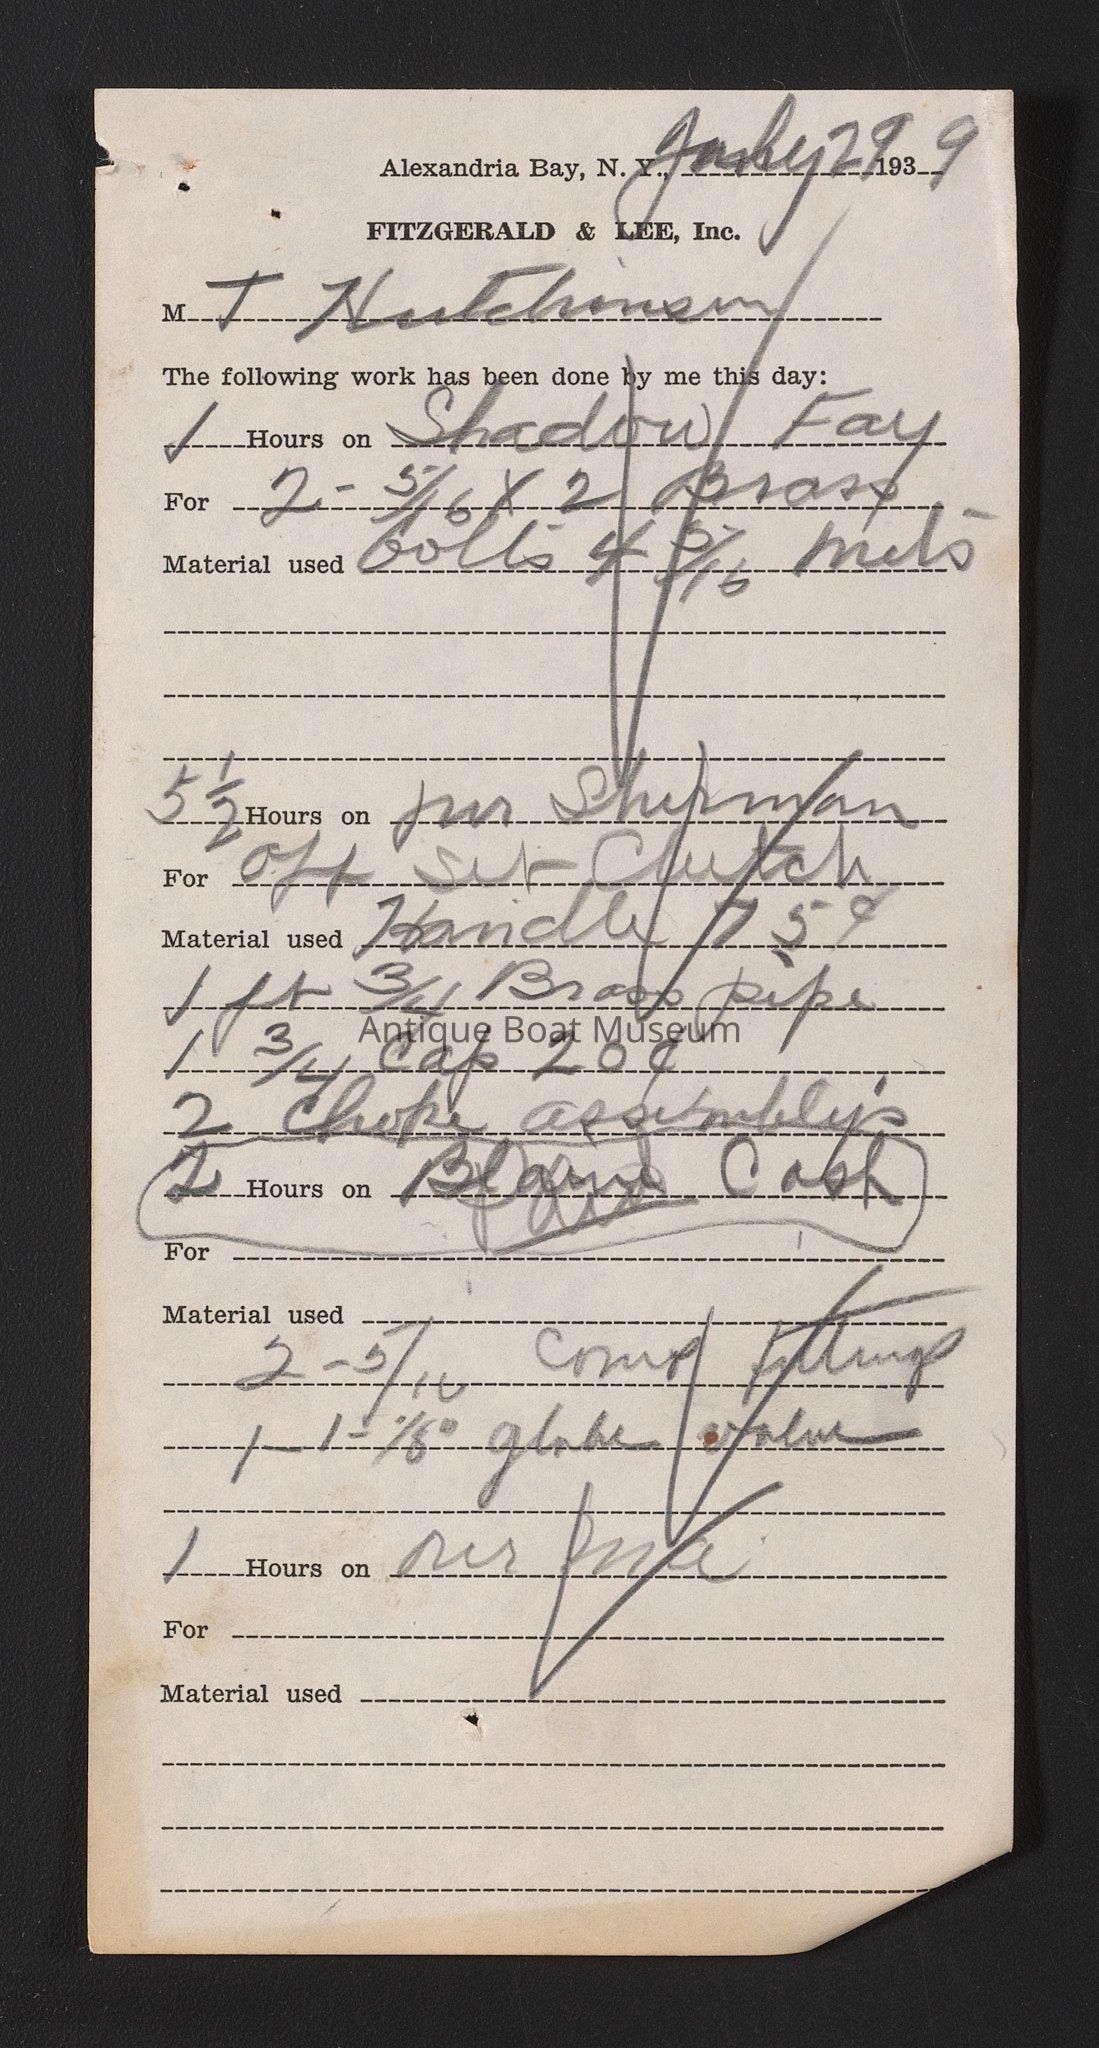 Alexandria Bay, N. Y., July 29 1939
FITZGERALD & LEE, Inc.
M T Hutchinson
The following work has been done by me this day:
1 Hours on Shadow Fay
For 2 - 5/16 X 2 Brass
Material used bolts 4 5/16 nuts
5 1/2 Hours on Sherman
For Off set Clutch
Material used Handle 75¢
1 ft 3/4 Brass pipe
Antique Boat Museum
1 3/4 Cap 20¢
2 Choke assembly's
2 Hours on Cash
For
Material used
2 - 5/16 Comp fittings
1 - 1 - 1/8" globe valve
1 Hours on
For
Material used